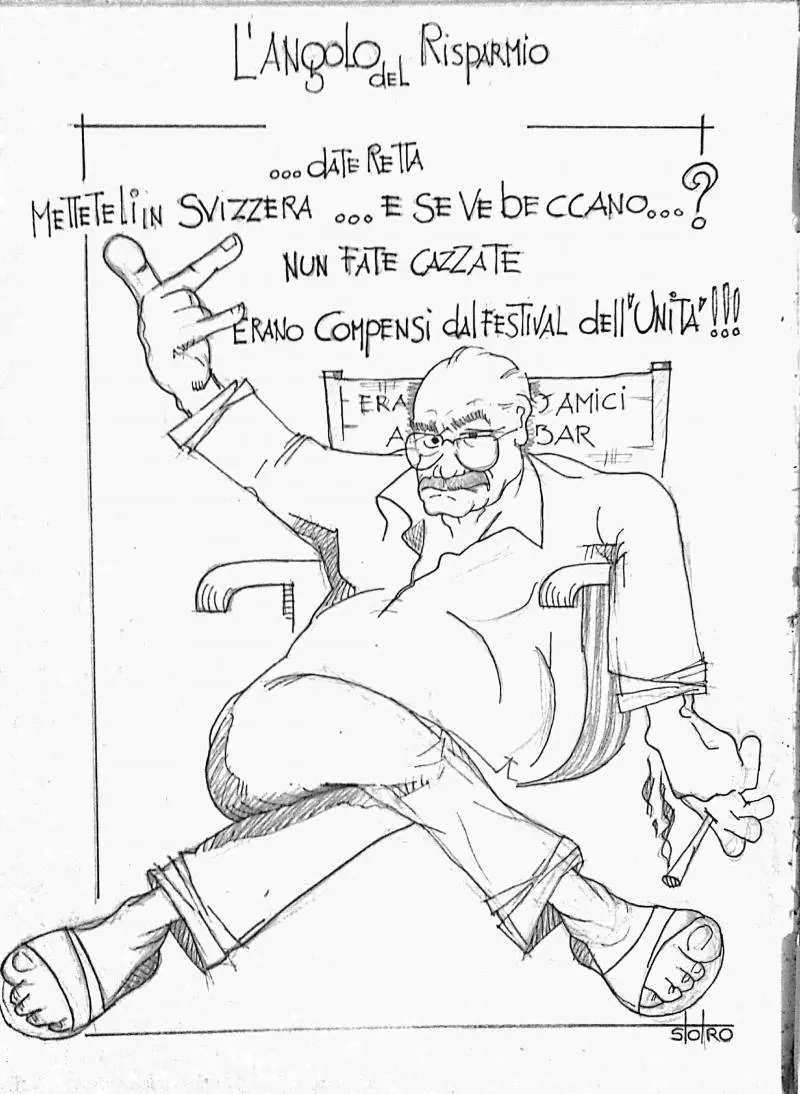 L'ANGOLO DEL RISPARMIO
...DATE RETTA
METTETELI IN SVIZZERA ... E SE VE BECCANO...?
NUN FATE CAZZATE
ERANO COMPENSI DAL FESTIVAL DELL'"UNITA"!!!
ERA AMICI
A BAR
STORO